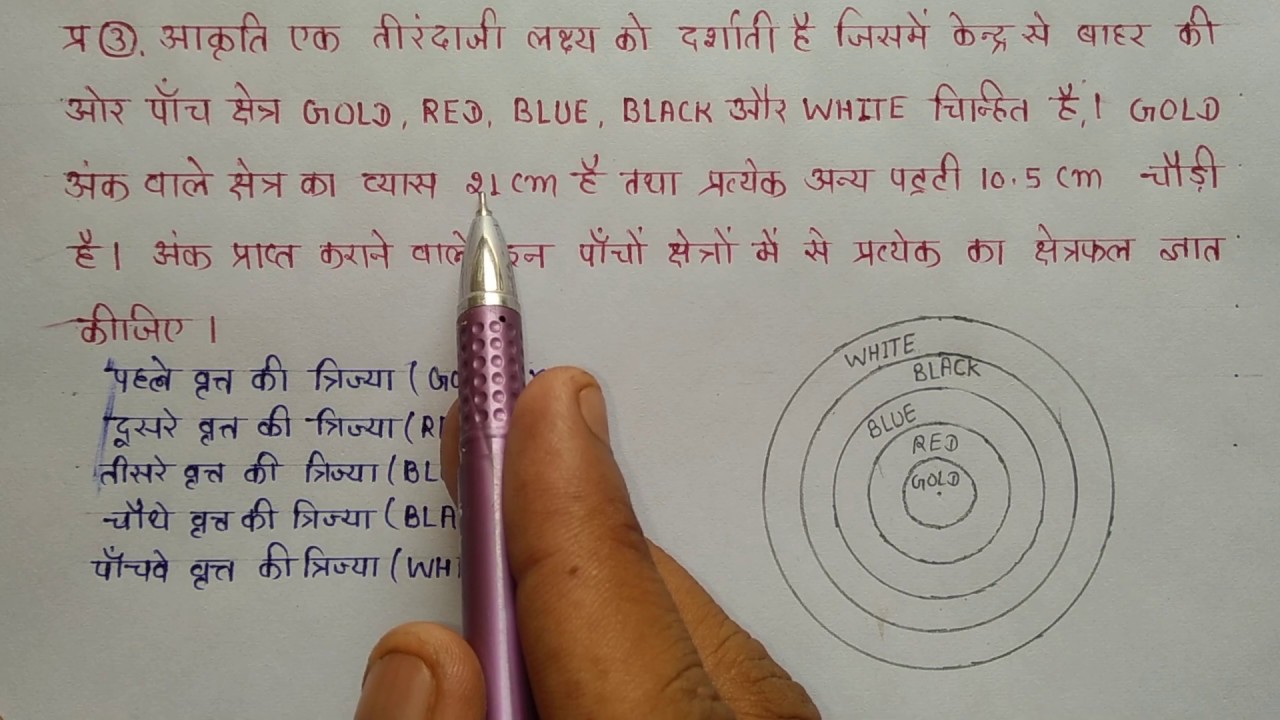 प्र ③. आकृति एक तीरंदाजी लक्ष्य को दर्शाती है जिसमें केन्द्र से बाहर की
ओर पाँच क्षेत्र GOLD, RED, BLUE, BLACK और WHITE चिन्हित है,। GOLD
अंक वाले क्षेत्र का व्यास 21 cm है तथा प्रत्येक अन्य पट्टी 10.5 cm चौड़ी
है। अंक प्राप्त कराने वाले इन पाँचों क्षेत्रों में से प्रत्येक का क्षेत्रफल ज्ञात
कीजिए ।
पहले वृत्त की त्रिज्या (
दूसरे वृत्त की त्रिज्या (
तीसरे वृत्त की त्रिज्या (
चौथे वृत्त की त्रिज्या (
पाँचवे वृत्त की त्रिज्या (
WHITE
BLACK
BLUE
RED
GOLD